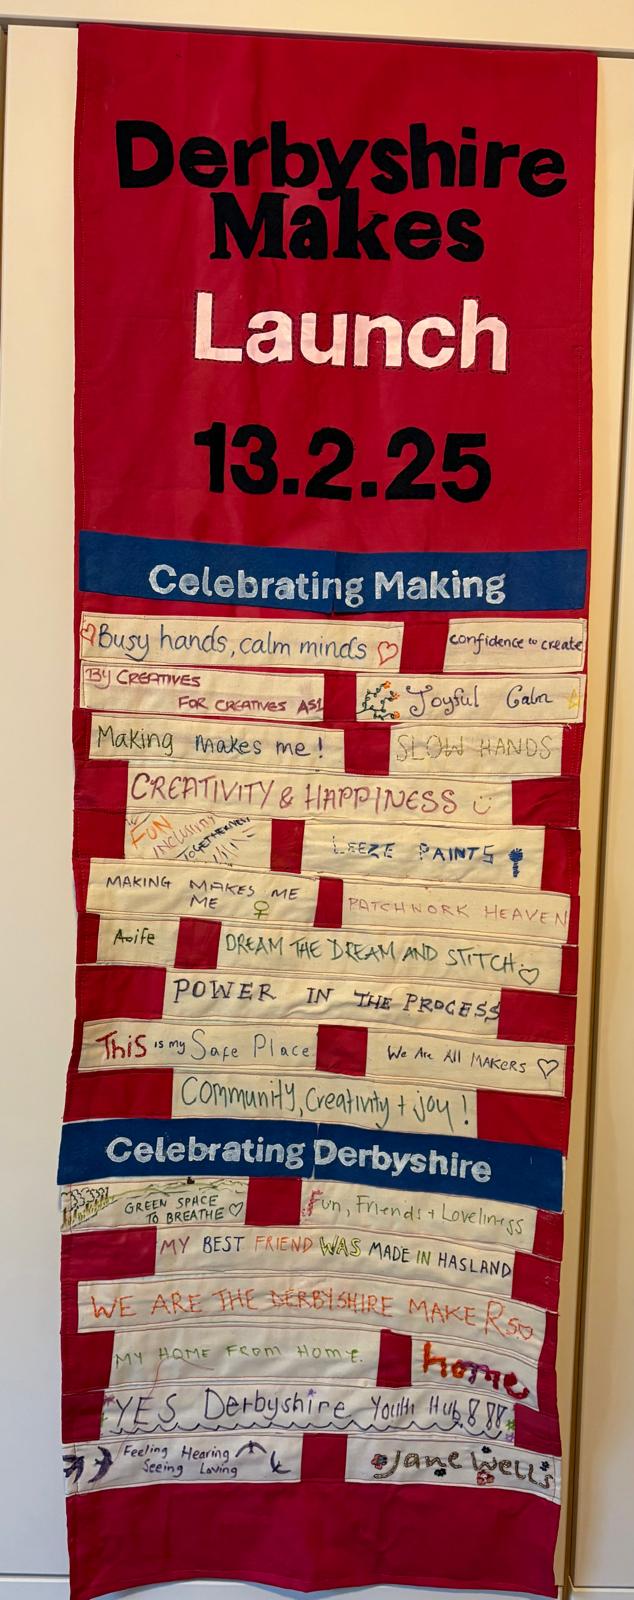 Derbyshire
Makes
Launch
13.2.25
Celebrating Making
Busy hands, calm minds
confidence to create
BY CREATIVES
FOR CREATIVES AS1
Joyful Calm
Making makes me!
SLOW HANDS
CREATIVITY & HAPPINESS
FUN
INCLUSIVITY
TOGETHERNESS
LEEZE PAINTS
MAKING MAKES ME
ME
PATCHWORK HEAVEN
Aoife
DREAM THE DREAM AND STITCH
POWER IN THE PROCESS
THiS is my Safe Place
We Are All MAKERS
Community, Creativity + joy!
Celebrating Derbyshire
GREEN SPACE
TO BREATHE
Fun, Friends + Loveliness
MY BEST FRIEND WAS MADE IN HASLAND
WE ARE THE DERBYSHIRE MAKERS
MY HOME FROM HOME.
home
YES Derbyshire Youth Hub!!!
Feeling Hearing
Seeing Loving
Jane Wells